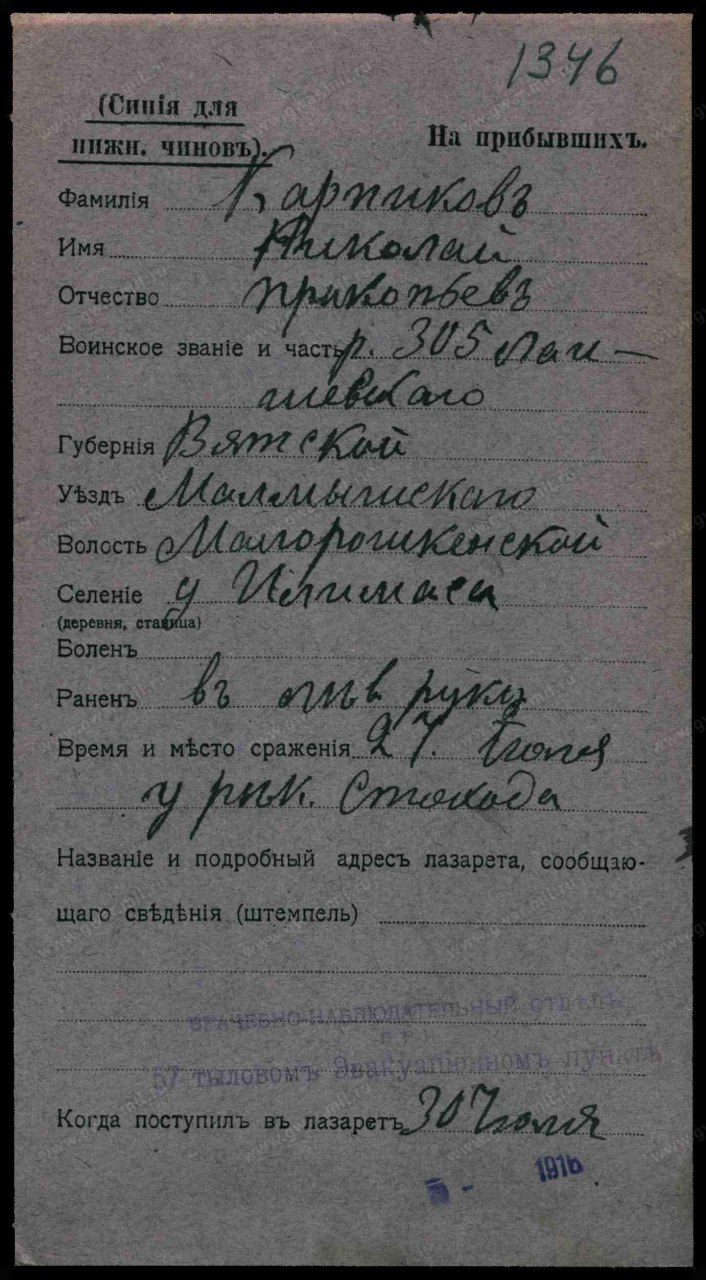 1346
(Синія для
нижн. чиновъ).
На прибывшихъ.
Фамилія Карпиковъ
Имя Николай
Отчество Прокопьевъ
Воинское званіе и часть р. 305 Лаи-
шевскаго
Губернія Вятской
Уѣздъ Малмыжскаго
Волость Малорожкенской
Селеніе
(деревня, станица)
Боленъ
Раненъ въ лѣв руку
Время и мѣсто сраженія 27. Іюля
у рѣк. Стохода
Названіе и подробный адресъ лазарета, сообщаю-
щаго свѣдѣнія (штемпель)
ВРАЧЕБНО-НАБЛЮДАТЕЛЬНЫЙ ОТДѢЛЪ
ПРИ
57 тыловомъ Эвакуаціонномъ пунктѣ
Когда поступилъ въ лазаретъ 30 Іюля
1916